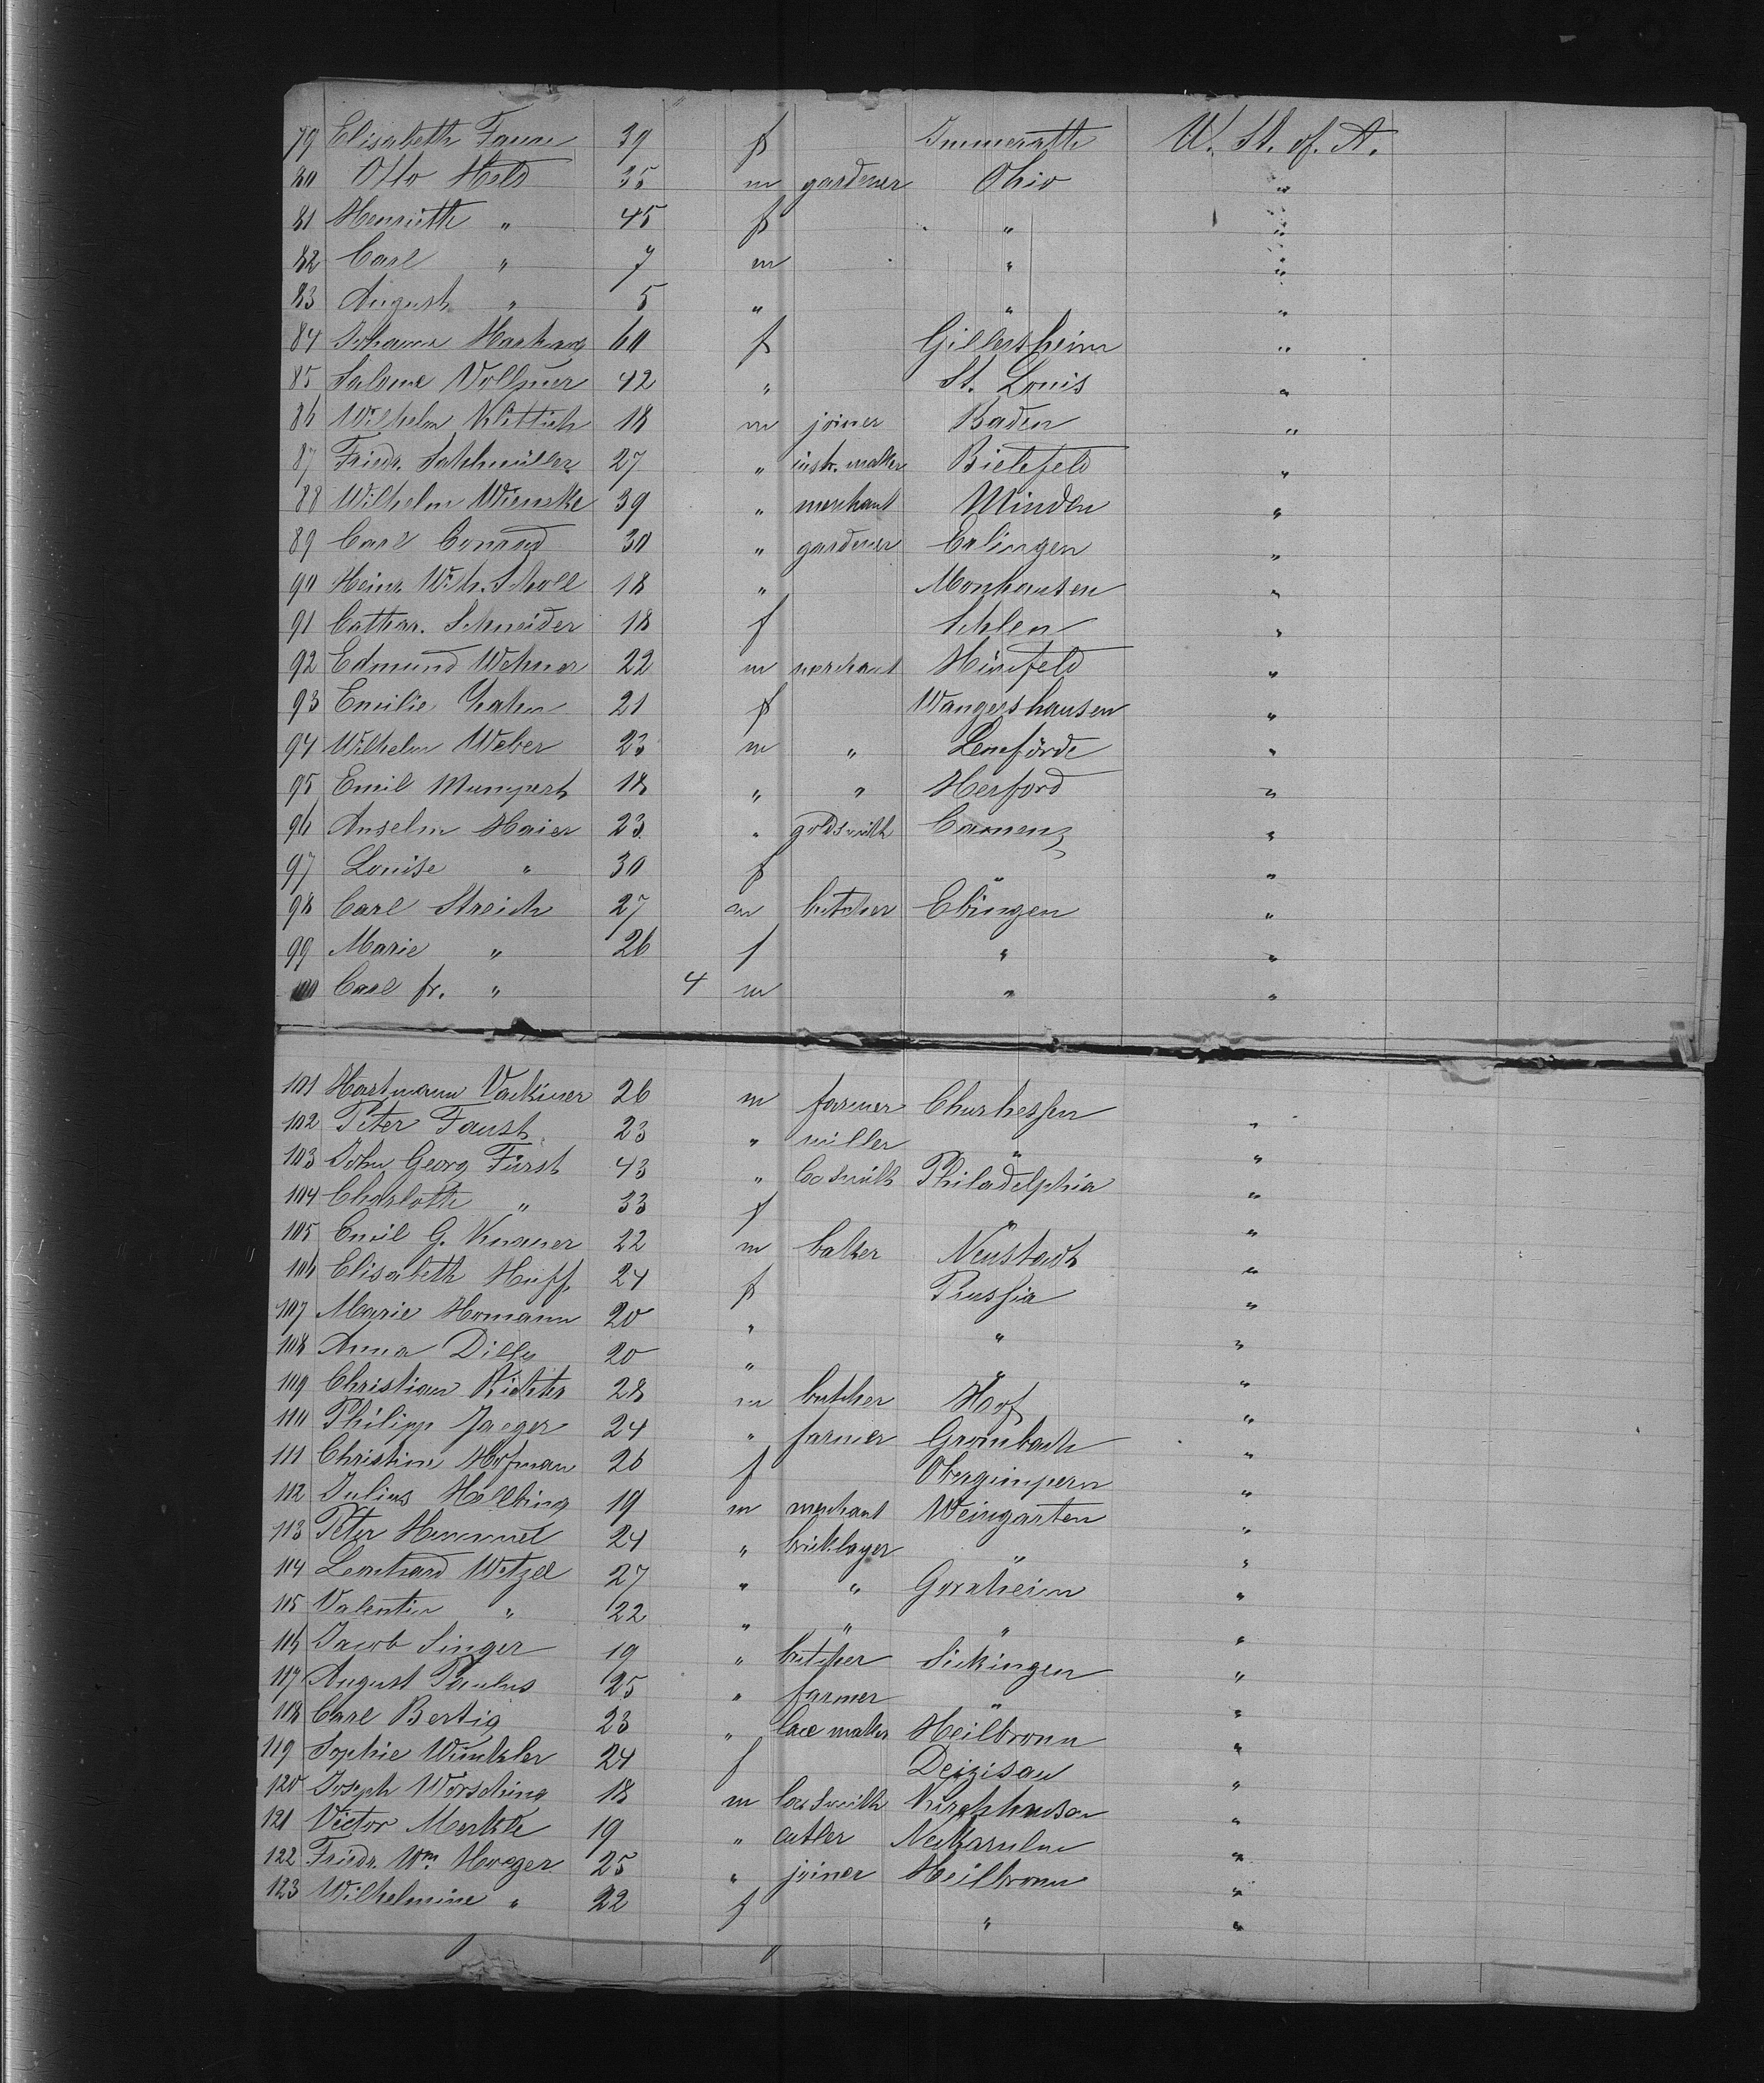 79 Elisabeth Faure 39 f Immerath U. St. of. A.
80 Otto Held 35 m gardener Ohio "
81 Henriette " 45 f " "
82 Carl " 7 m " "
83 August " 5 " " "
84 Johanna 60 f Gillersheim "
85 Salome Vollmer 42 " St. Louis "
86 Wilhelm Wittich 18 m joiner Baden "
87 Friedr. Sahlmüller 27 " instr. maker Bielefeld "
88 Wilhelm Wienske 39 " merchant Minden "
89 Carl Conrad 30 " gardener Erlingen "
90 Heinr. Wilh. Scholl 18 " Monhausen "
91 Cathar. Schneider 18 f Schlen "
92 Edmund Wehner 22 m merchant Hünfeld "
93 Emilie Hahn 21 f Wangershausen "
94 Wilhelm Weber 23 m " Lemförde "
95 Emil Mumpert 18 " " Herford "
96 Anselm Haier 23 " goldsmith Camenz "
97 Louise " 30 f " "
98 Carl Streich 27 m butcher Ebingen "
99 Marie " 26 f " "
100 Carl fr. " 4 m " "
101 Hartmann Vackiner 26 m farmer Churhessen "
102 Peter Faust 23 " miller " "
103 John Georg Fürst 43 " locksmith Philadelphia "
104 Charlotte " 33 f " "
105 Emil G. Knauer 22 m baker Neustadt "
106 Elisabeth Huff 24 f Prussia "
107 Marie Homann 20 " " "
108 Anna Dilly 20 " " "
109 Christian Richter 28 m butcher Hof "
110 Philipp Jaeger 24 " farmer Grombach "
111 Christine Hofman 26 f Obergimpern "
112 Julius Hellbing 19 m merchant Weingarten "
113 Peter Hemmel 24 " bricklayer " "
114 Leonhard Wetzel 27 " " Gornheim "
115 Valentin " 22 " " " "
116 Jacob Singer 19 " butcher Sickingen "
117 August Paulus 25 " farmer " "
118 Carl Bertig 23 " lace maker Heilbronn "
119 Sophie Winkler 24 f Deizisau "
120 Joseph Worsching 18 m locksmith Kirchhausen "
121 Victor Merkle 19 " cutler Neckarulm "
122 Friedr. Wm. Hoeger 25 " joiner Heilbronn "
123 Wilhelmine " 22 f " "